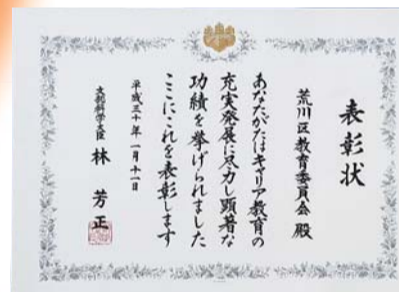 表彰状
荒川区教育委員会 殿
あなたがたはキャリア教育の
充実発展に尽力し顕著な
功績を挙げられました
ここにこれを表彰します
平成三十年一月十一日
文部科学大臣 林 芳正